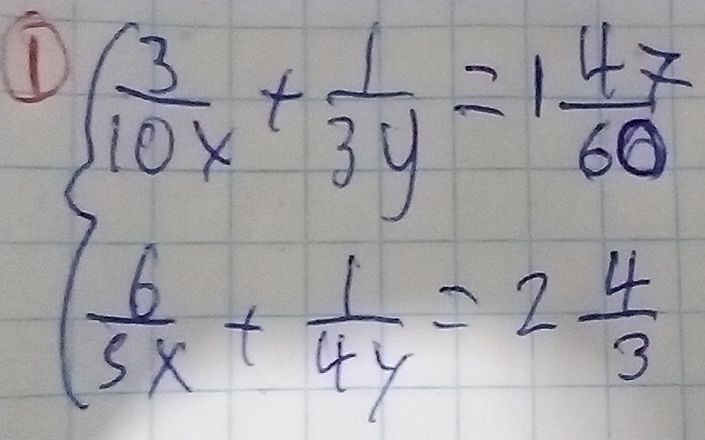 ① { 3/10x + 1/3y = 1 47/60
6/5x + 1/4y = 2 4/3